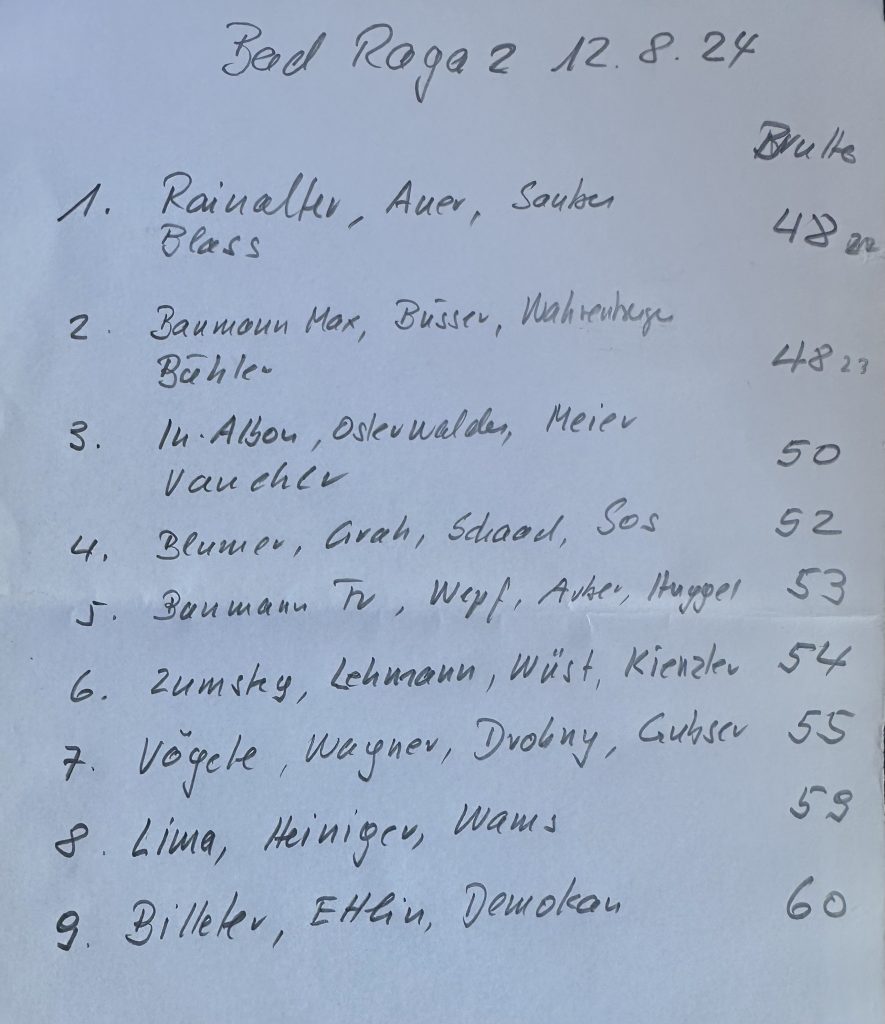 Bad Ragaz 12.8.24
Brutto
1. Rainalter, Auer, Sauber
Blass 48
2. Baumann Max, Büsser, Wahrenberger
Bühler 48 23
3. In-Albon, Osterwalder, Meier
Vaucher 50
4. Blumer, Grah, Schaad, Sos 52
5. Baumann Tr, Wepf, Huggel 53
6. Zumsteg, Lehmann, Wüst, Kienzler 54
7. Vögele, Wagner, Drobny, Gubser 55
8. Lima, Heiniger, Wams 59
9. Billeter, Ettlin, Demokan 60